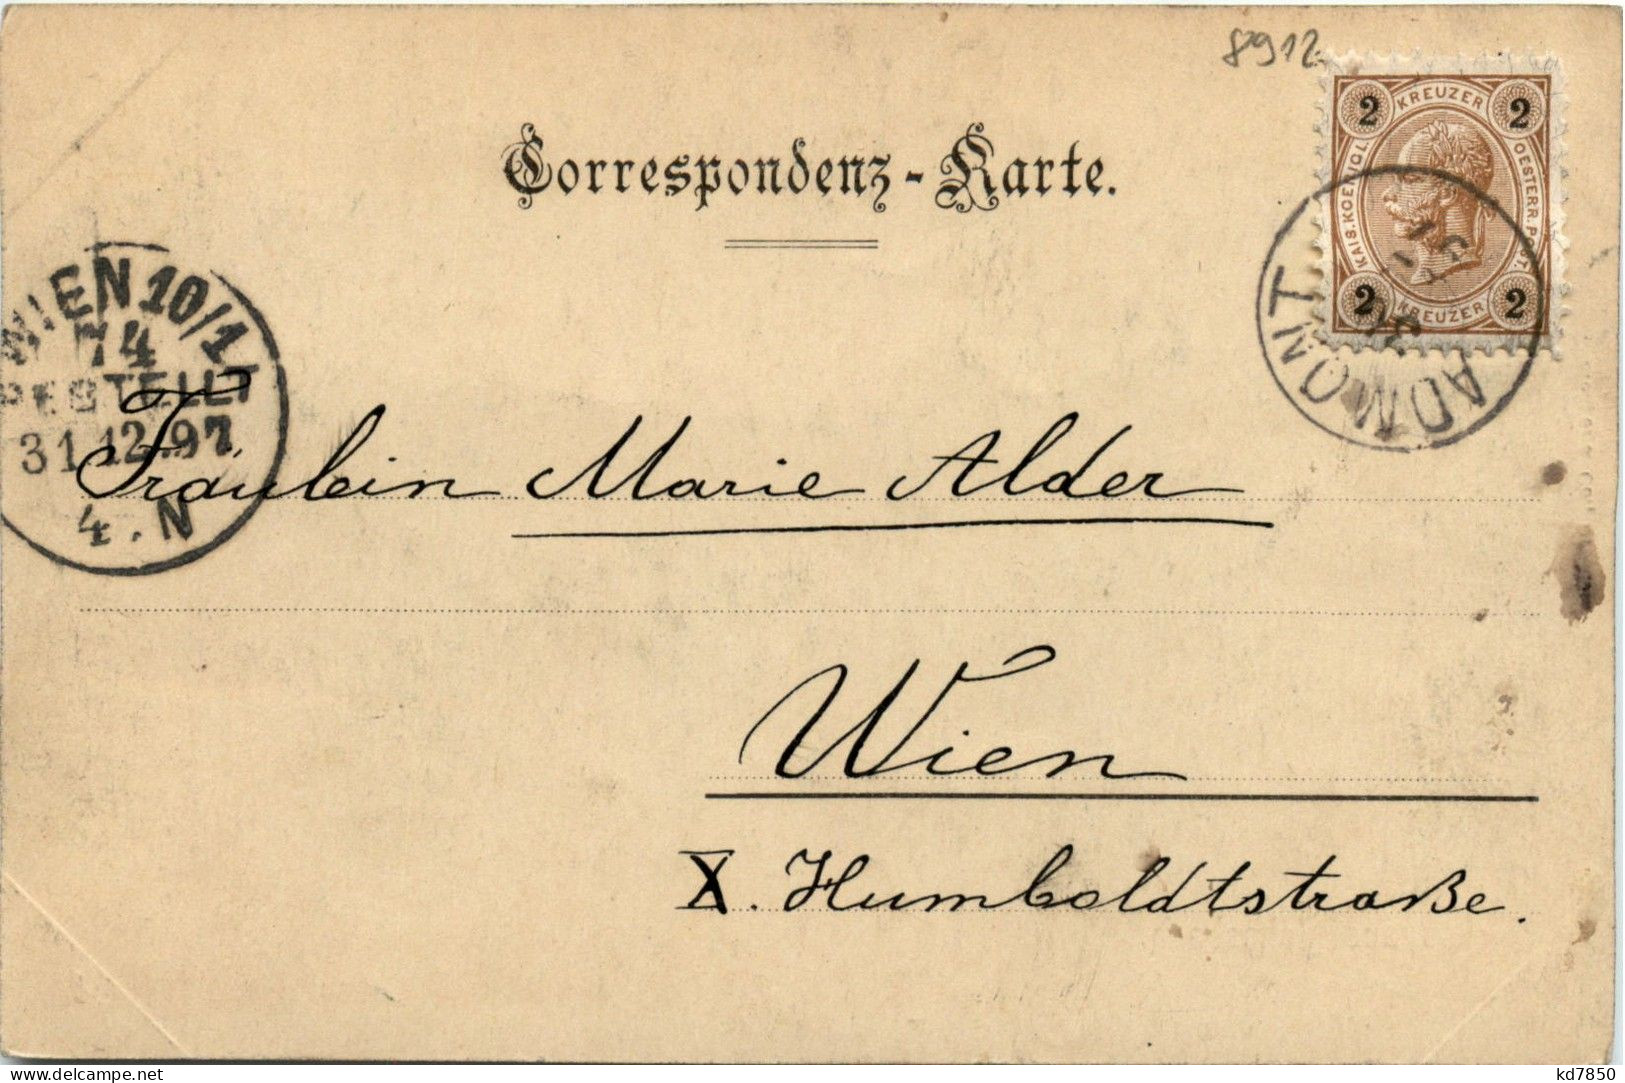 8912
Correspondenz-Karte.
2 KREUZER 2
KAIS. KOENIGL. OESTERR. POST.
2 KREUZER 2
ADMONT
31
WIEN 10/1
74
BESTELLT
31.12.97
4.N
Fräulein Marie Alder
Wien
X. Humboldtstraße.
www.delcampe.net
kd7850